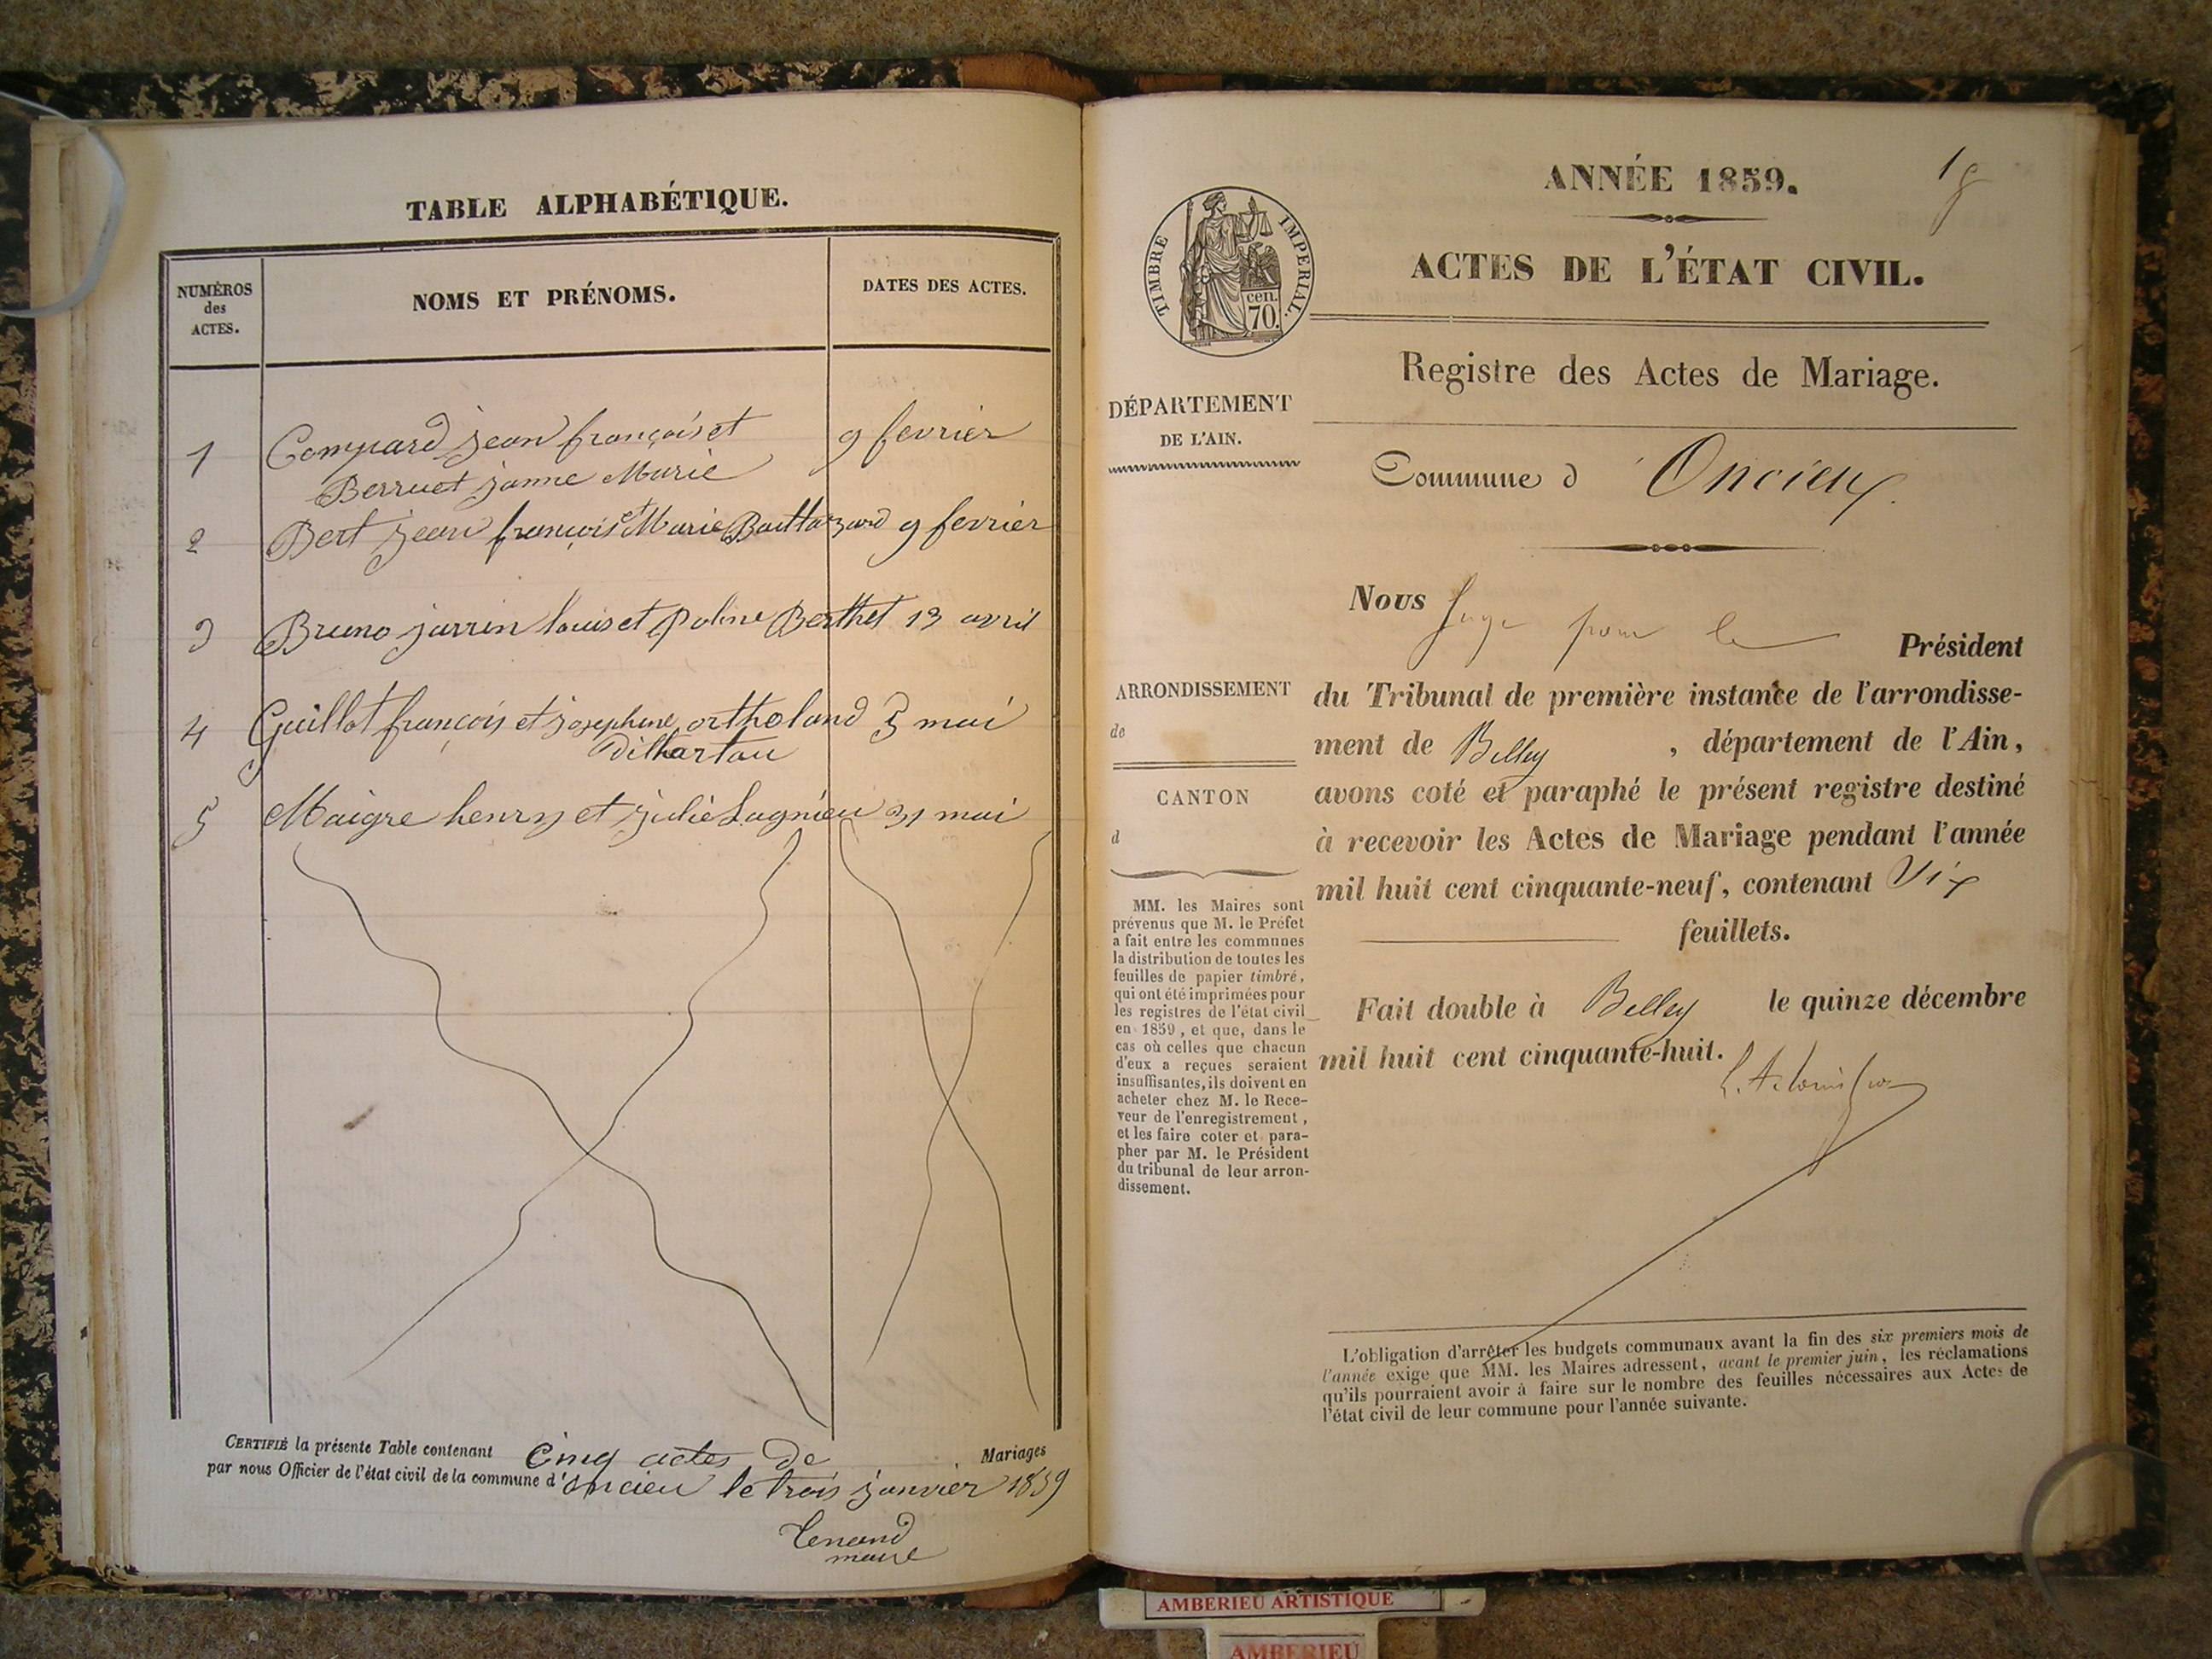 TABLE ALPHABÉTIQUE.
NUMÉROS
des
ACTES.
NOMS ET PRÉNOMS.
DATES DES ACTES.
1 Compard jean françois et 9 fevrier
Berruet janne Marie
2 Bert jean françois et Marie Baittazard 9 fevrier
3 Bruno jarrin louis et poline Berthet 13 avril
4 Guillot françois et josephine ortholand 5 mai
dit
5 Maigre henry et julie Lagnieu 31 mai
CERTIFIÉ la présente Table contenant Cinq actes De Mariages
par nous Officier de l'état civil de la commune d'oncieu le trois janvier 1859
Tenand
maire
18
ANNÉE 1859.
TIMBRE IMPERIAL.
cen.
70.
ACTES DE L'ÉTAT CIVIL.
Registre des Actes de Mariage.
DÉPARTEMENT
DE L'AIN.
Commune d'Oncieux.
Nous Juge pour le Président
ARRONDISSEMENT
de
CANTON
d
du Tribunal de première instance de l'arrondisse-
ment de Belley, département de l'Ain,
avons coté et paraphé le présent registre destiné
à recevoir les Actes de Mariage pendant l'année
mil huit cent cinquante-neuf, contenant Six
feuillets.
Fait double à Belley le quinze décembre
mil huit cent cinquante-huit.
MM. les Maires sont
prévenus que M. le Préfet
a fait entre les communes
la distribution de toutes les
feuilles de papier timbré,
qui ont été imprimées pour
les registres de l'état civil
en 1859, et que, dans le
cas où celles que chacun
d'eux a reçues seraient
insuffisantes, ils doivent en
acheter chez M. le Rece-
veur de l'enregistrement,
et les faire coter et para-
pher par M. le Président
du tribunal de leur arron-
dissement.
L'obligation d'arrêter les budgets communaux avant la fin des six premiers mois de
l'année exige que MM. les Maires adressent, avant le premier juin, les réclamations
qu'ils pourraient avoir à faire sur le nombre des feuilles nécessaires aux Actes de
l'état civil de leur commune pour l'année suivante.
AMBERIEU ARTISTIQUE
AMBERIEU